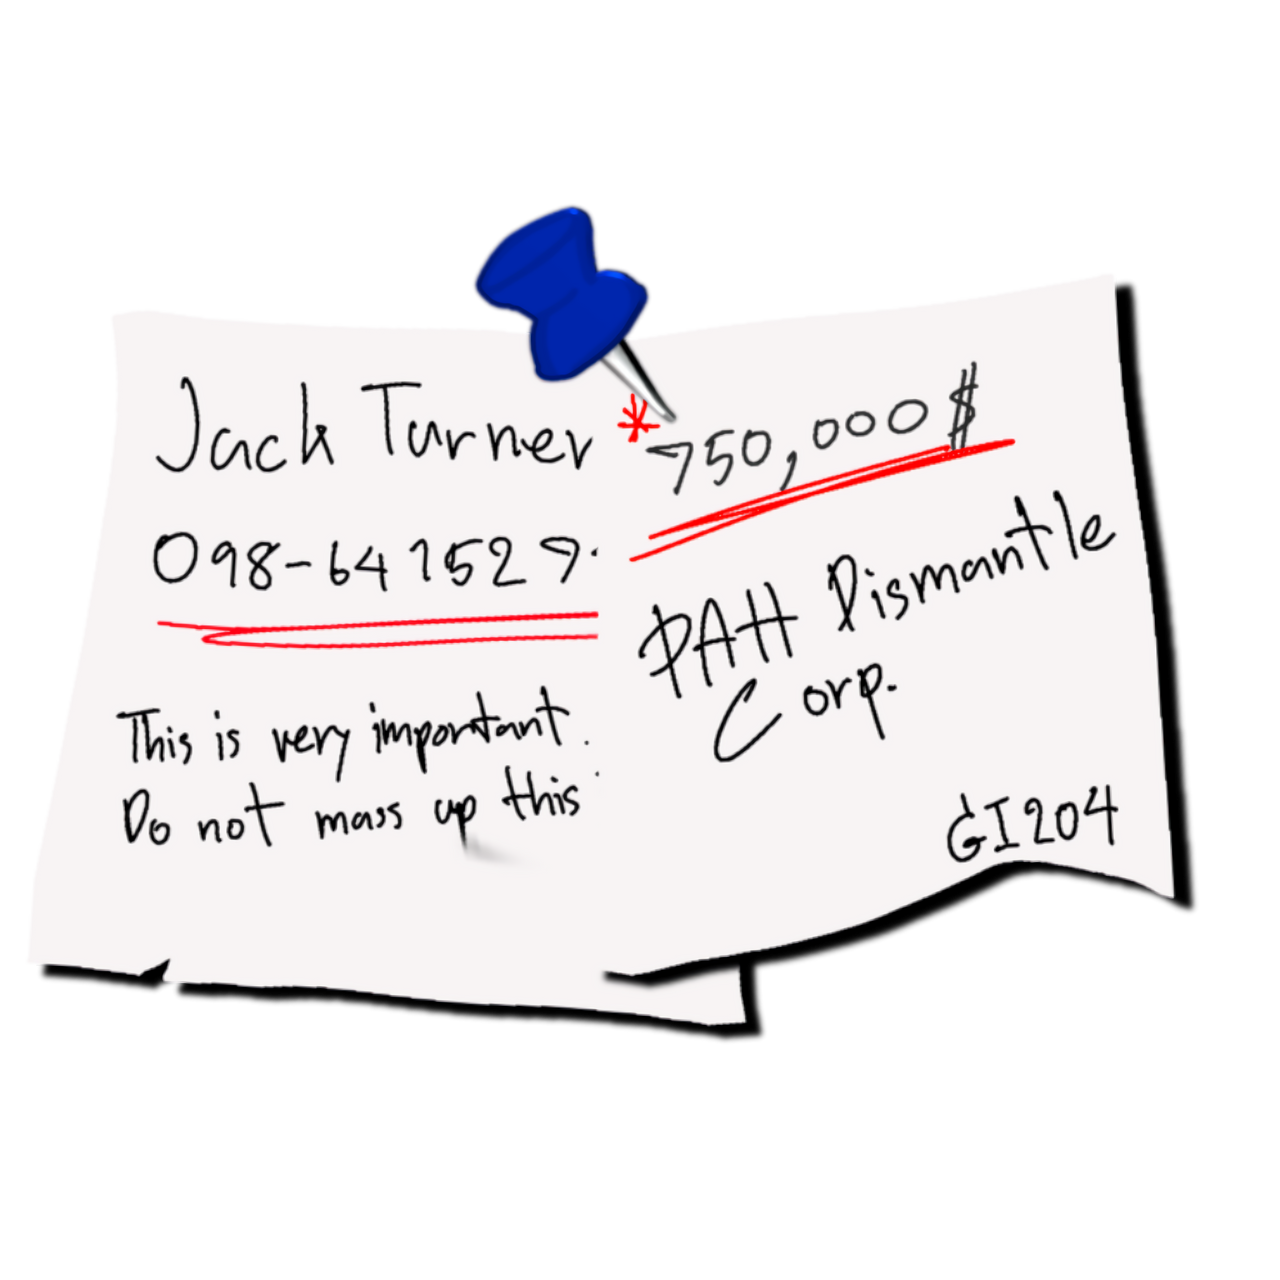 Jack Turner
098-6415279
This is very important.
Do not mass up this
*750,000$
PAH Dismantle
Corp.
GI204